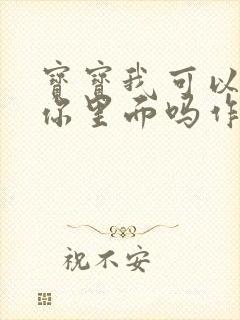 寶寶我可以
你里而吗作
祝不安